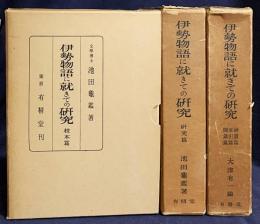 文學博士 池田龜鑑著
伊勢物語に就きての研究
校本篇
東京 有精堂刊
伊勢物語に就きての研究
研究篇
池田龜鑑著
有精堂
伊勢物語に就きての研究
補遺篇
索引篇
圖録篇
大津有一編
有精堂